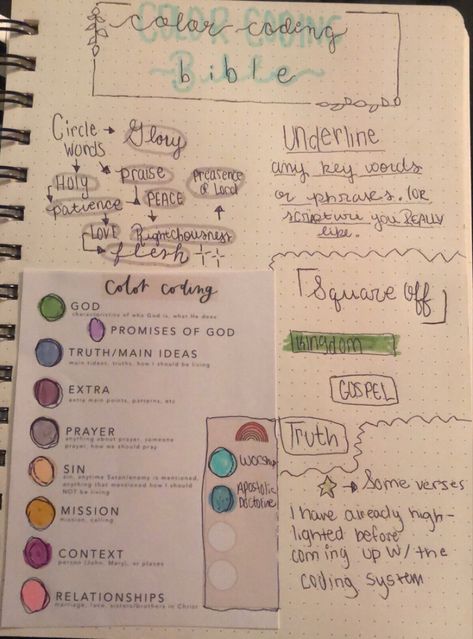 COLOR CODING
color coding
Bible
bible
Circle words → Glory
Holy
praise
Preasence of Lord
patience
PEACE
LOVE
Rightchousness
flesh
Underline
any key words
or phrases. (or
scripture you REALLY
like.
Square Off
Kingdom
GOSPEL
Truth
☆ → Some verses
I have already high-
lighted before
coming up w/ the
coding system
Color coding
GOD
characteristics of who God is, what He does
PROMISES OF GOD
TRUTH/MAIN IDEAS
main ideas, truths, how I should be living
EXTRA
extra main points, patterns, etc
PRAYER
anything about prayer, someone
prayer, how we should pray
SIN
sin, anytime Satan/enemy is mentioned,
anything that mentioned how I should
NOT be living
MISSION
mission, calling
CONTEXT
person (John, Mary), or places
RELATIONSHIPS
marriage, love, sisters/brothers in Christ
Worship
Apostolic
Doctrine